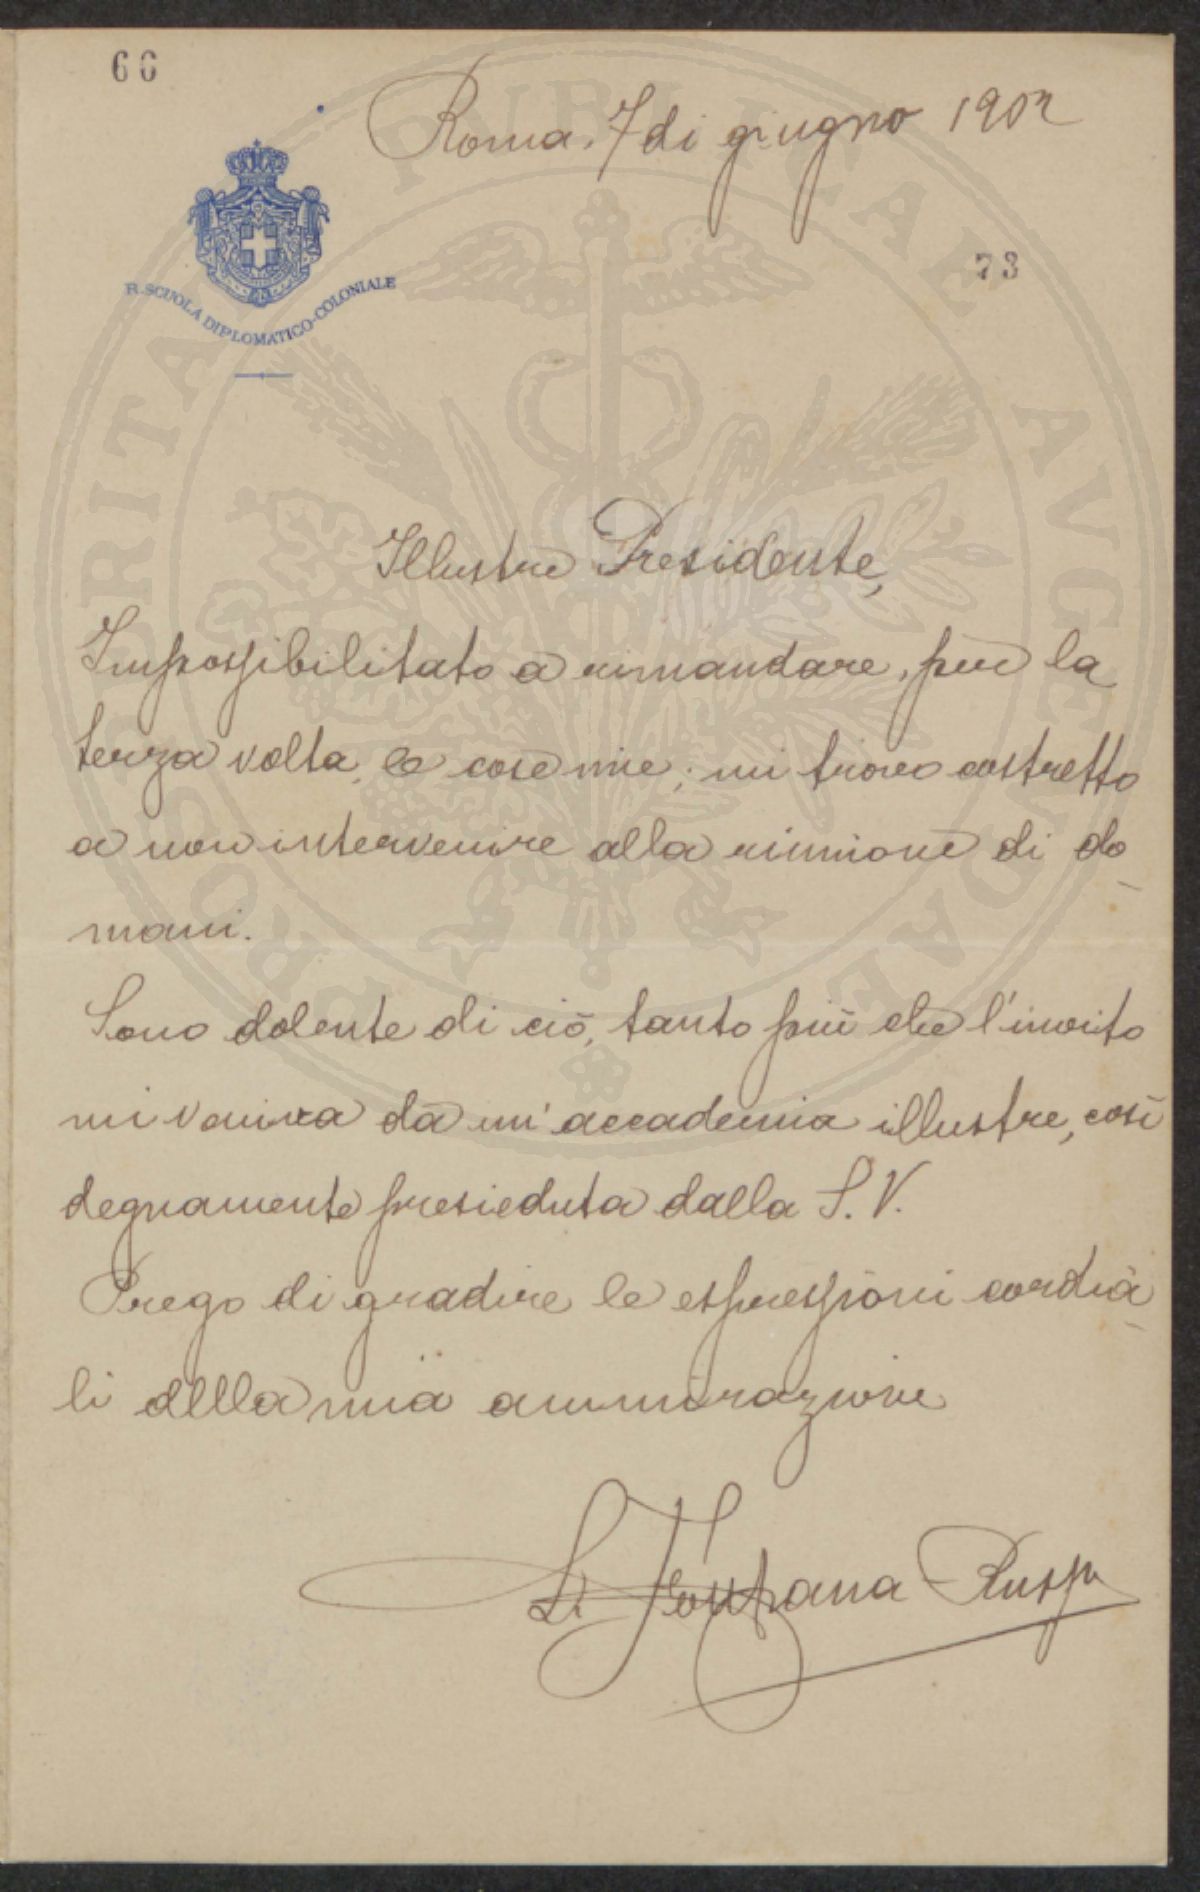 66
Roma, 7 di giugno 1902
73
R. SCUOLA DIPLOMATICO-COLONIALE
Illustre Presidente,
Impossibilitato a rimandare, per la
terza volta, le cose mie, mi trovo costretto
a non intervenire alla riunione di do-
mani.
Sono dolente di ciò, tanto più che l'invito
mi veniva da un'accademia illustre, così
degnamente presieduta dalla S. V.
Prego di gradire le espressioni cordia-
li della mia ammirazione
Fontana Russo
PROSPERITATI PVBLICAE AVGENDAE